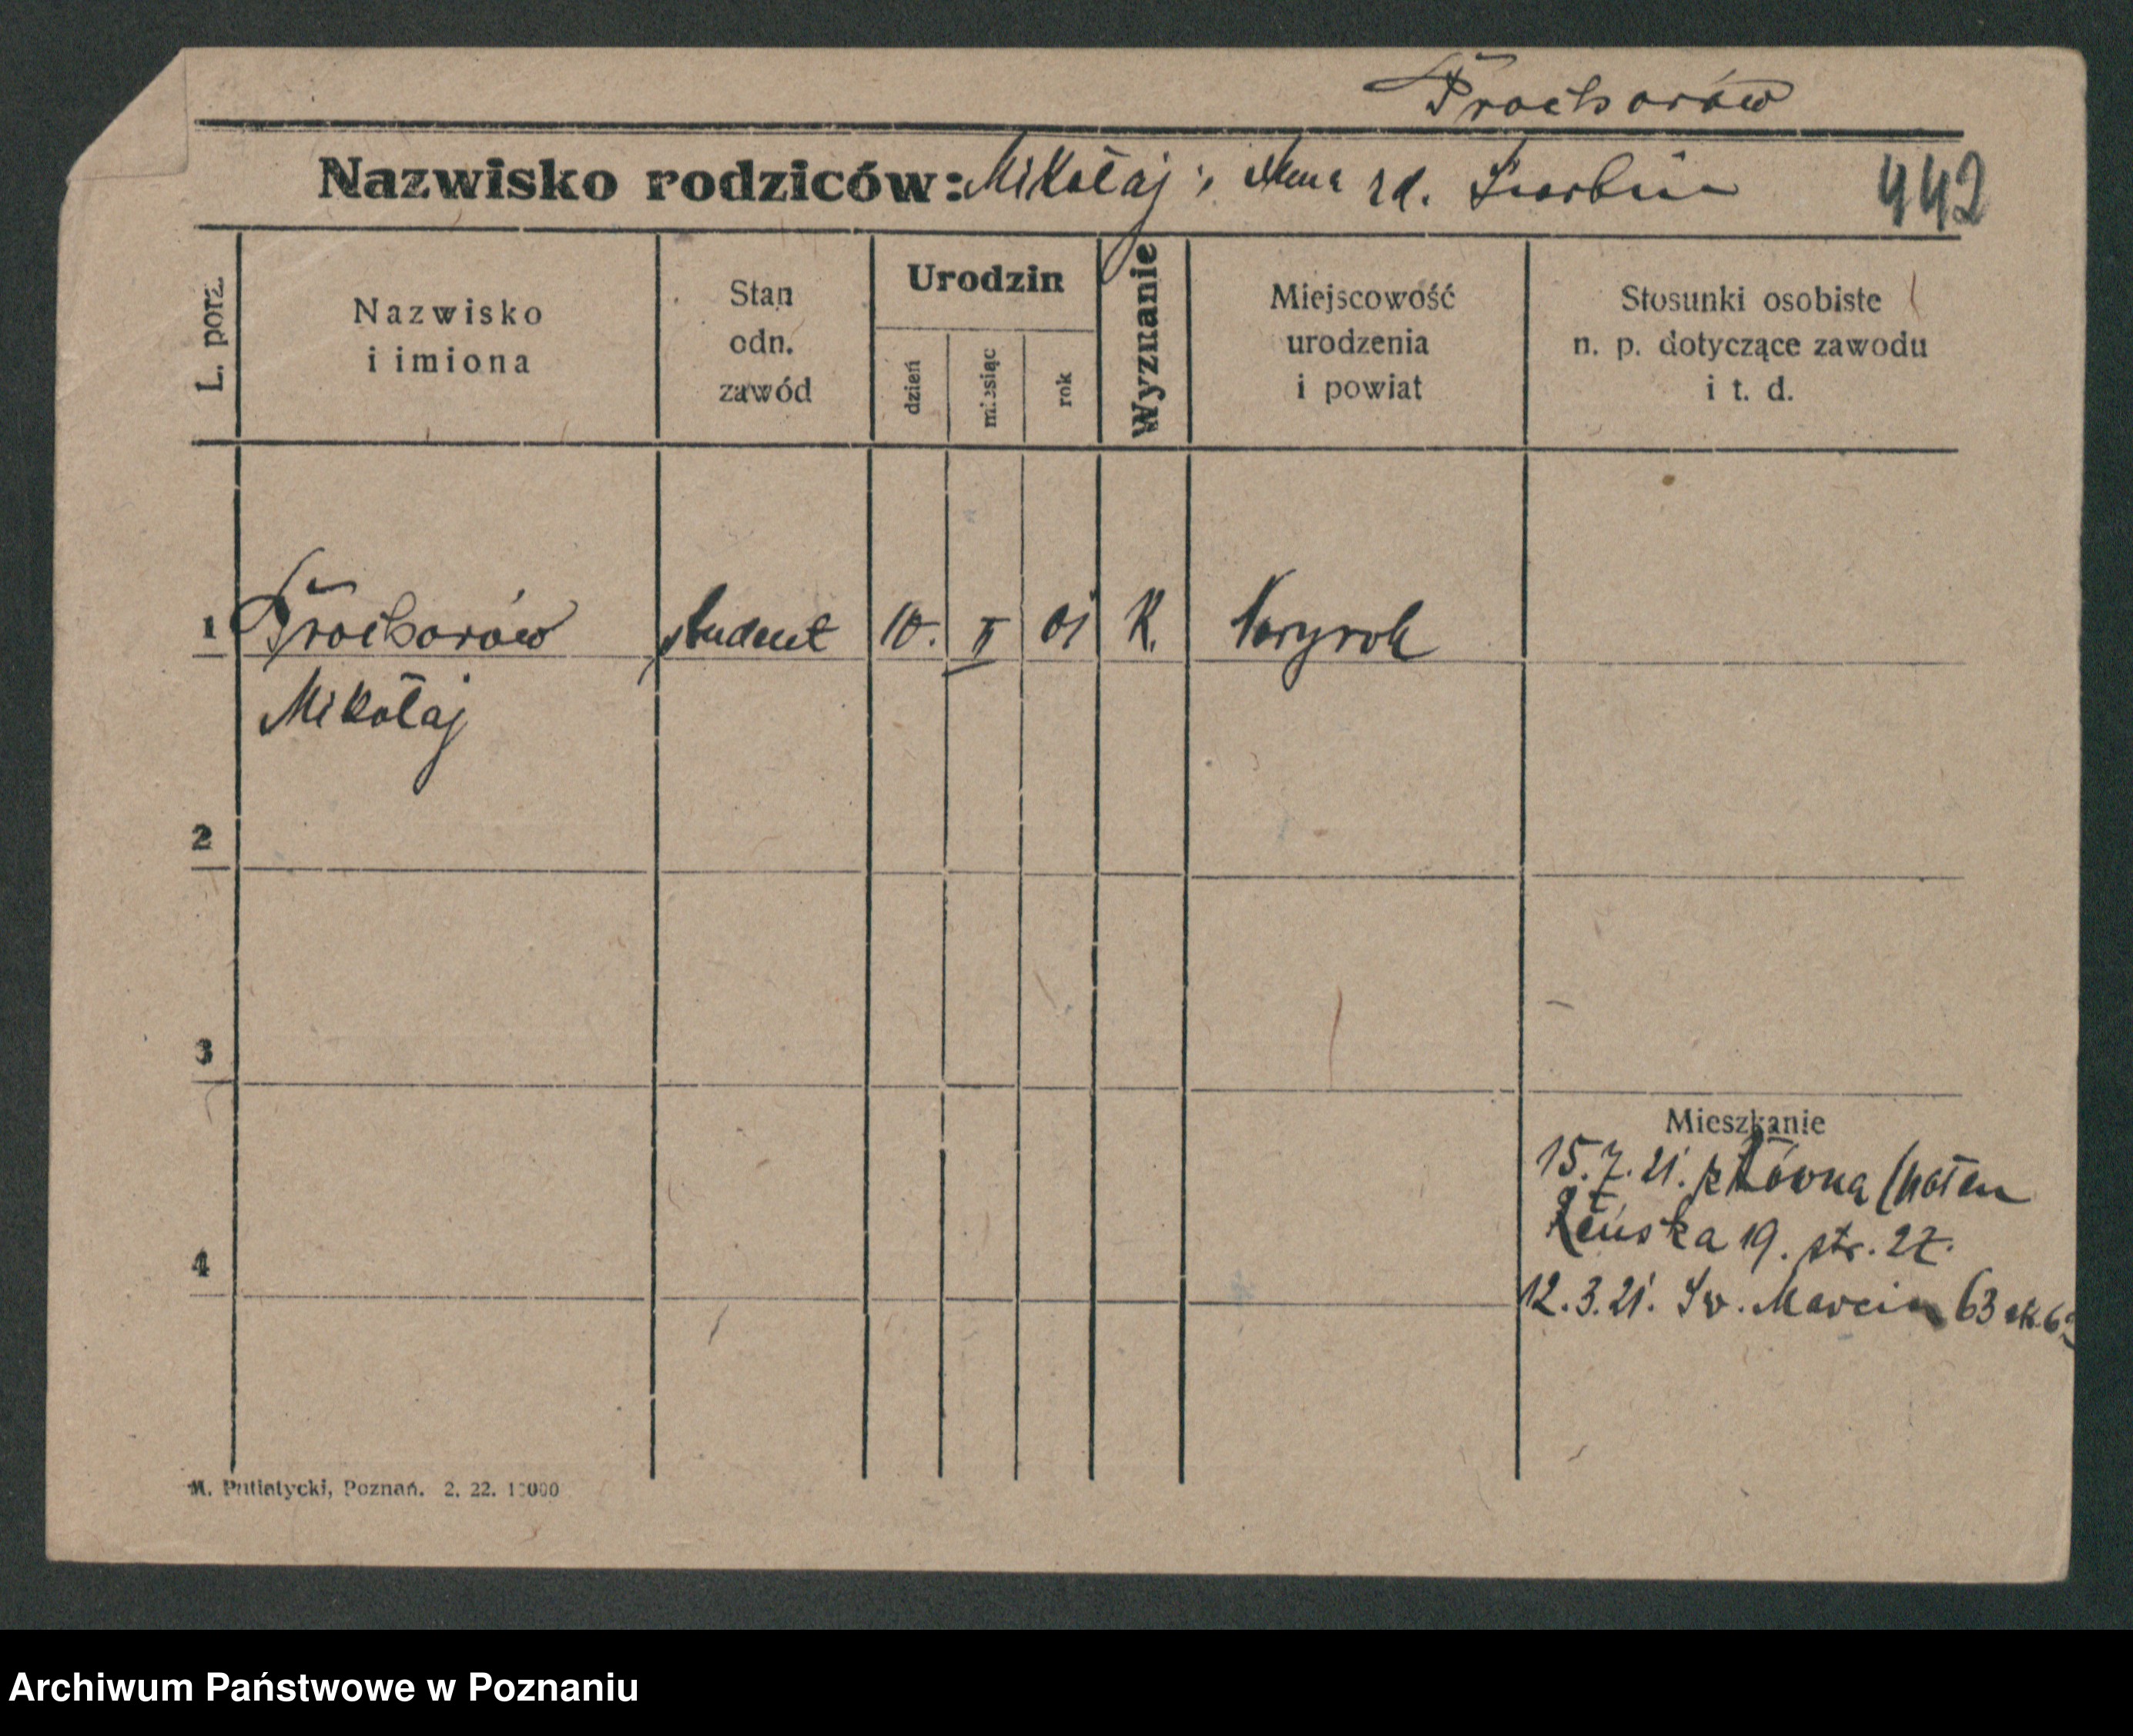 Prochorów
Nazwisko rodziców: Mikołaj i Anna zd.
442
L. porz.
Nazwisko
i imiona
Stan
odn.
zawód
Urodzin
dzień
miesiąc
rok
Wyznanie
Miejscowość
urodzenia
i powiat
Stosunki osobiste
n. p. dotyczące zawodu
i t. d.
1 Prochorów student 10. II 01 K.
Mikołaj
2
3
Mieszkanie
15.7.21.
19. str. 27.
4
12.3.21. Św. Marcin 63
M. Putiatycki, Poznań. 2. 22. 10000
Archiwum Państwowe w Poznaniu